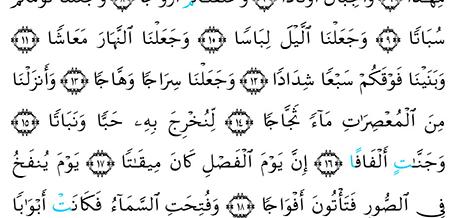 سُبَاتًا ﴿٩﴾ وَجَعَلْنَا ٱلَّيْلَ لِبَاسًا ﴿١٠﴾ وَجَعَلْنَا ٱلنَّهَارَ مَعَاشًا ﴿١١﴾
وَبَنَيْنَا فَوْقَكُمْ سَبْعًا شِدَادًا ﴿١٢﴾ وَجَعَلْنَا سِرَاجًا وَهَّاجًا ﴿١٣﴾ وَأَنزَلْنَا
مِنَ ٱلْمُعْصِرَٰتِ مَآءً ثَجَّاجًا ﴿١٤﴾ لِّنُخْرِجَ بِهِۦ حَبًّا وَنَبَاتًا ﴿١٥﴾
وَجَنَّٰتٍ أَلْفَافًا ﴿١٦﴾ إِنَّ يَوْمَ ٱلْفَصْلِ كَانَ مِيقَٰتًا ﴿١٧﴾ يَوْمَ يُنفَخُ
فِى ٱلصُّورِ فَتَأْتُونَ أَفْوَاجًا ﴿١٨﴾ وَفُتِحَتِ ٱلسَّمَآءُ فَكَانَتْ أَبْوَٰبًا